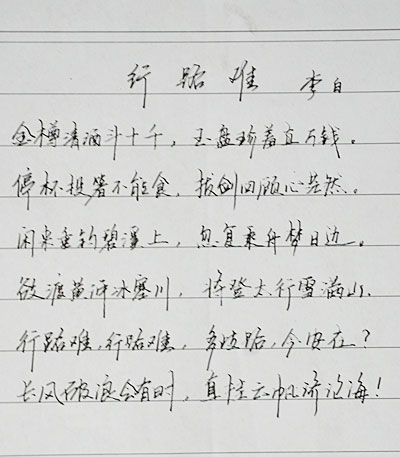 行路难 李白
金樽清酒斗十千，玉盘珍羞直万钱。
停杯投箸不能食，拔剑四顾心茫然。
闲来垂钓碧溪上，忽复乘舟梦日边。
欲渡黄河冰塞川，将登太行雪满山.
行路难，行路难，多歧路，今安在？
长风破浪会有时，直挂云帆济沧海！